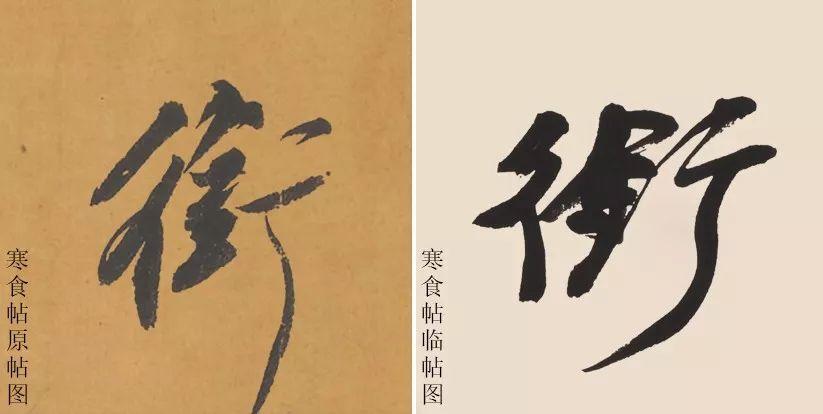 銜
寒食帖原帖图
銜
寒食帖临帖图